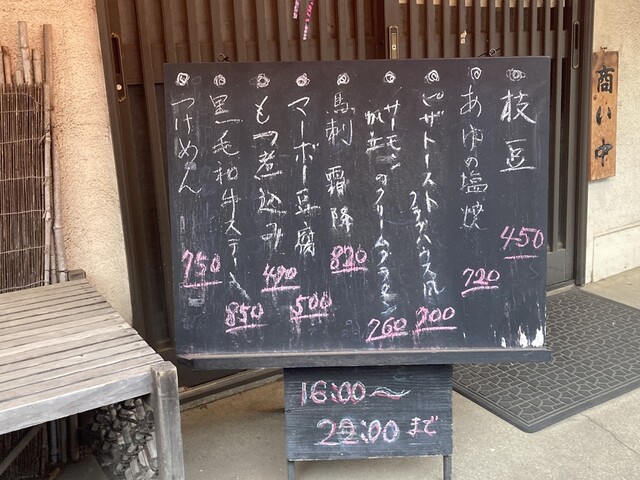 枝豆 450
あゆの塩焼 720
ピザトースト
クラブハウス風 700
サーモン
帆立 のクリームグラタン 260
馬刺 霜降 820
マーボー豆腐 500
もつ煮込み 490
黒毛和牛ステーキ 850
つけめん 750
商い中
16:00〜
22:00まで